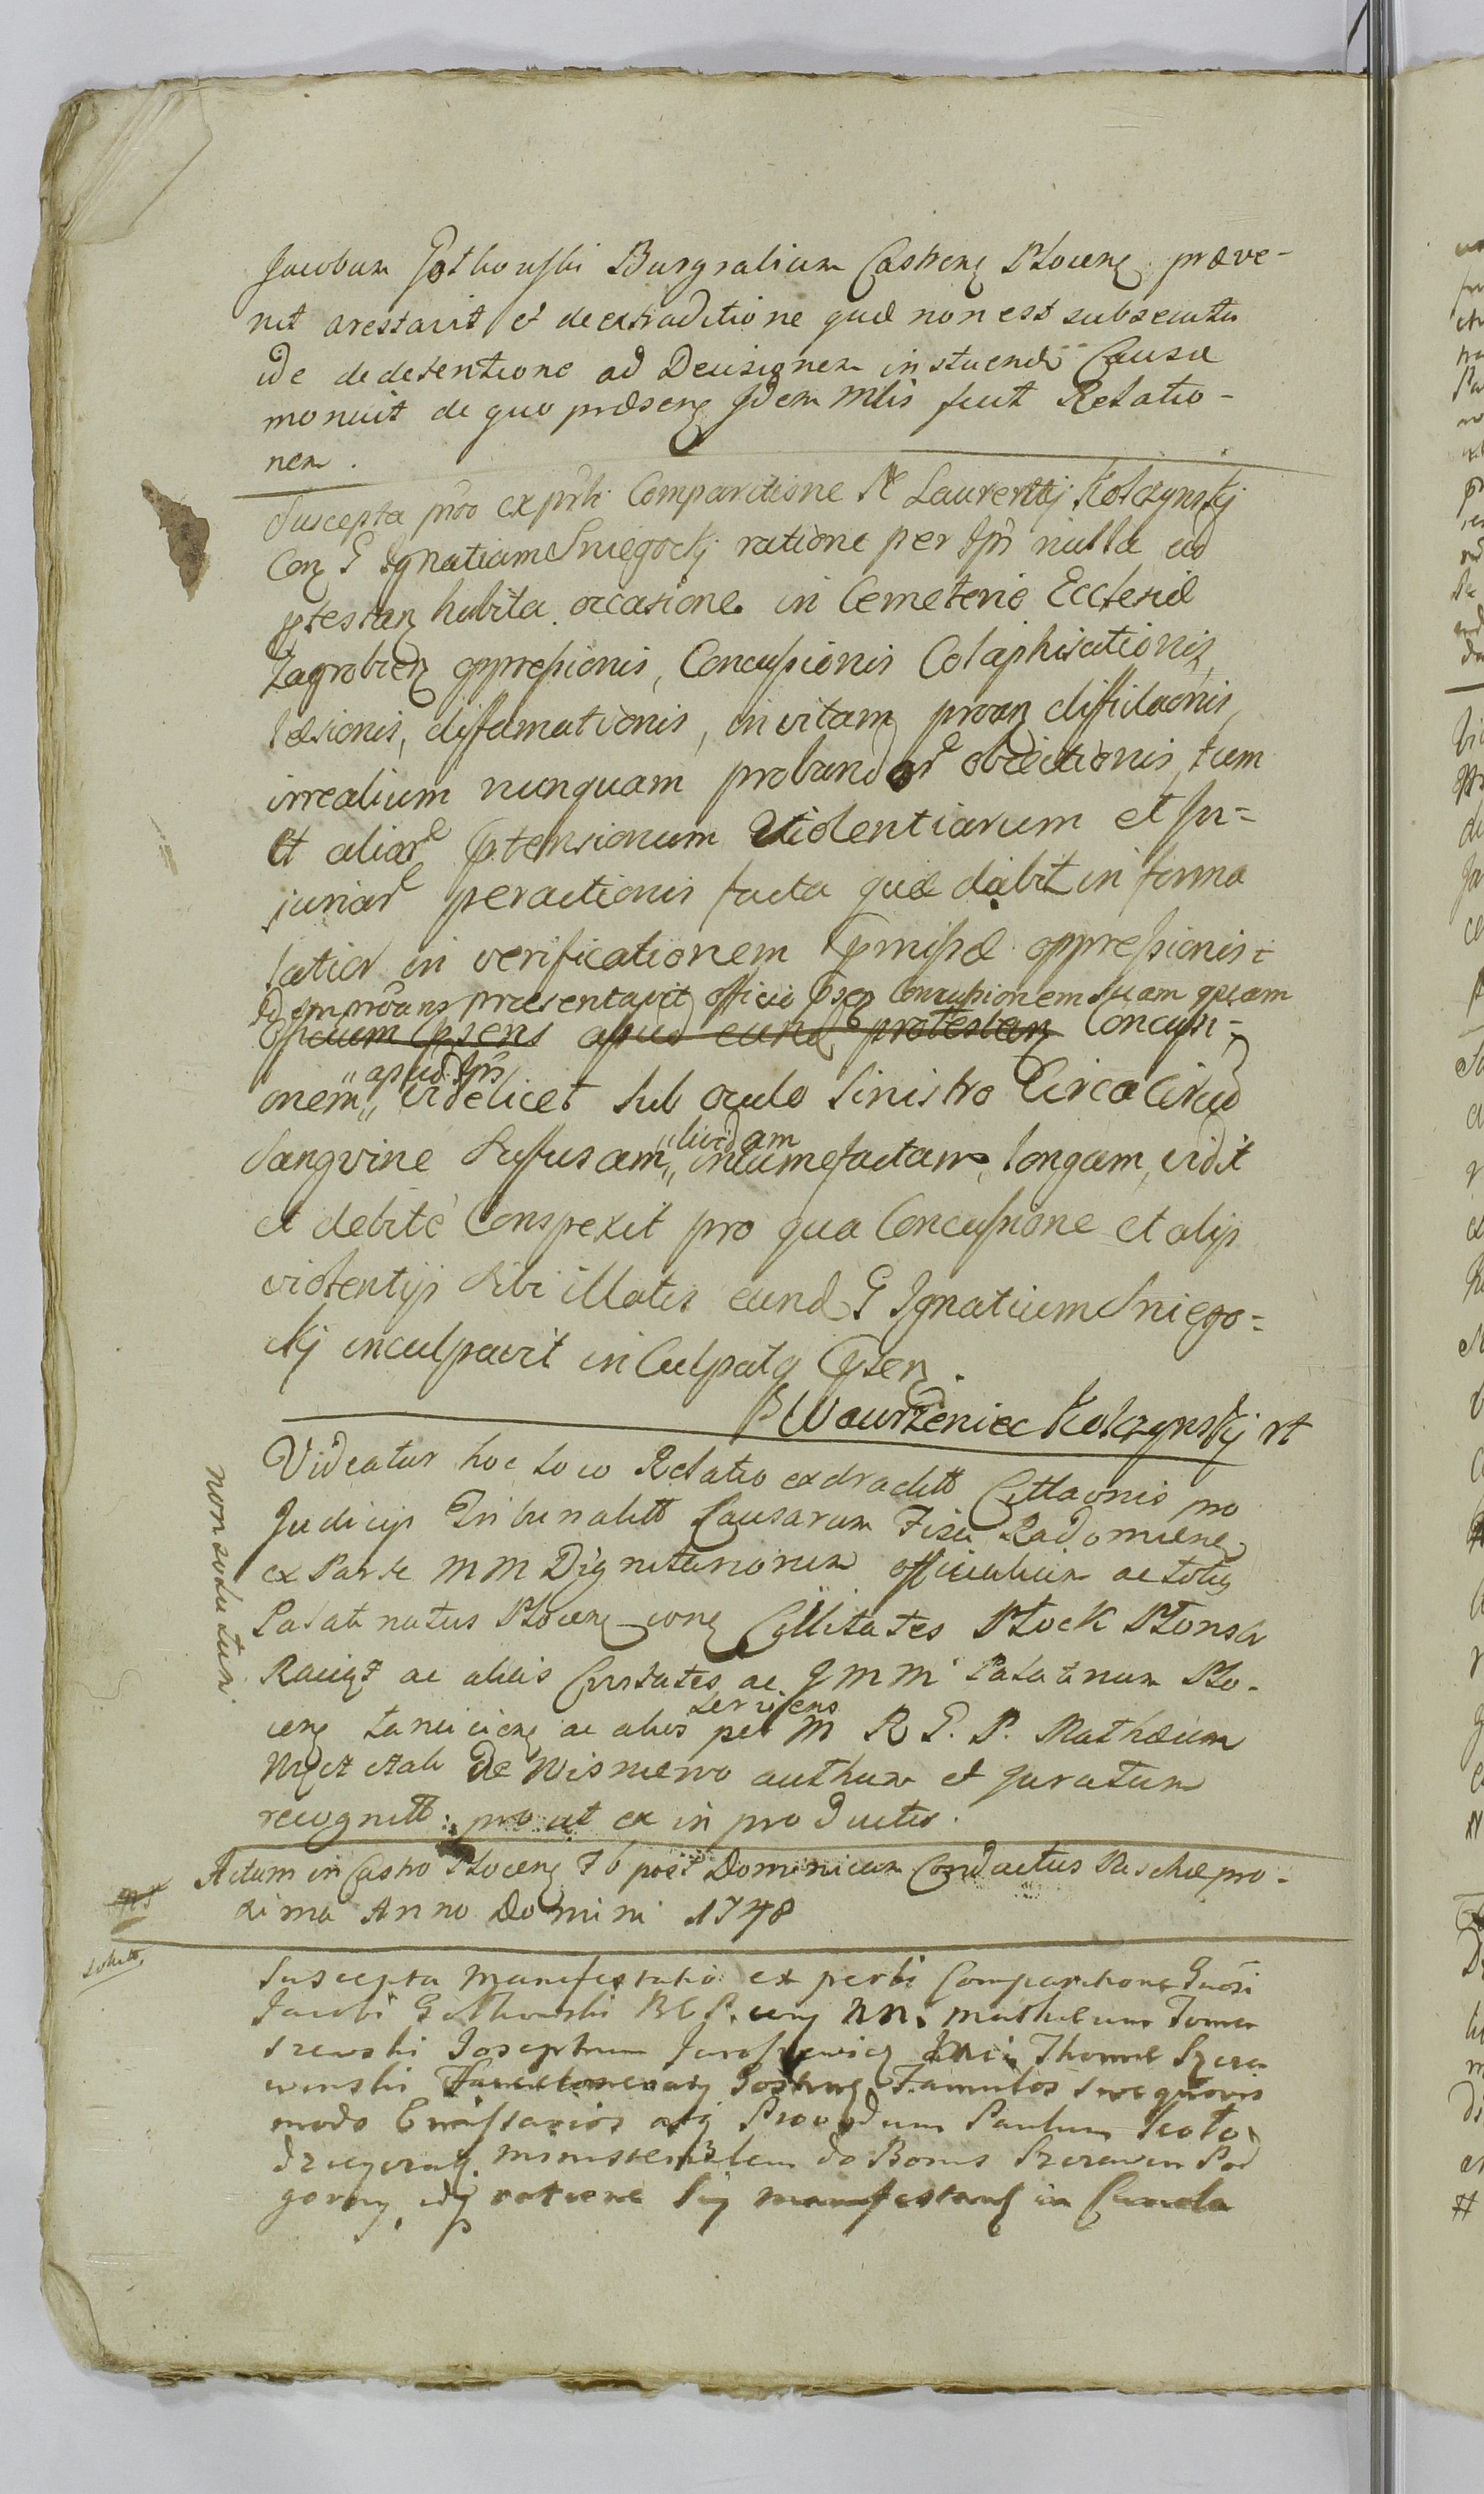 Jacobum Gothowski Burgrabium Castren Plocen præve-
nit arestavit et de extraditione quæ non est subsecuta
ide de detentione ad Decisionem instituendæ Causæ
monuit de quo præsens Idem Mlis fecit Relatio-
nem.
Suscepta prõo ex prbi Comparitione N Laurentij Kolczynskij
Con G Ignatium Sniegockj ratione per Ipm nulla ad
ptestan habita occasione in Cemeterio Ecclesiæ
Zagrobien oppressionis, Concussionis Colaphisationis,
læsionis, diffamationis, in vitam proan diffidaonis,
irrealium nunquam proband or obiectionis, tum
et aliar ptensionum violentiarum et In=
iuriar peractionis facta quæ dabit in forma
latior in verificationem pmissæ oppressionis
Id Ipm proans præsentavit officio psen Concussionem suam quam
officium psens apud eund protestan Concussi=
apud Ipm
onem videlicet sub oculo sinistro Circa Circa
lividam
Sangvine Suffusam intumefactam, longam, vidit
et debite Conspexit pro qua Concussione et alijs
violentijs sibi illatis eund G Ignatium Sniego=
ckj inculpavit in Culpatq psen.
Wawrzeniec Kolczynskj
Videatur hoc loco Relatio extradit Cittaonis pro
Judicijs Tribunalitt Causarum Fisci Radomien
non solutum
ex Parte MM Dignitariorum officialium ac totiq
Palatinatus Plocen con Civitates Plock Plonsk
Raciąz ac alias Civitates ac MM Palatinum Plo-
servitens
cen ac alios per M R G. P. Mathæum
de Wisniewo authum et Juratum
recognitt: pro ut ex in productis.
Actum in Castro Plocen F 6 post Dominicam Conductus Paschæ pro-
xima Anno Domini 1748
Suscepta Manifestatio ex perbi Comparitione
Jacobi Gothowski B C P. con NN. Mathæum Toma
szewski Josephum Jaroszewicz Thomæ Szcza
winski Famulos sive quovis
modo Emissarios atq Providum Paulum Koło
dzieyczak ministerialem de Bonis Szczawin Pod
gorny, idq ratione Sui manifestans in